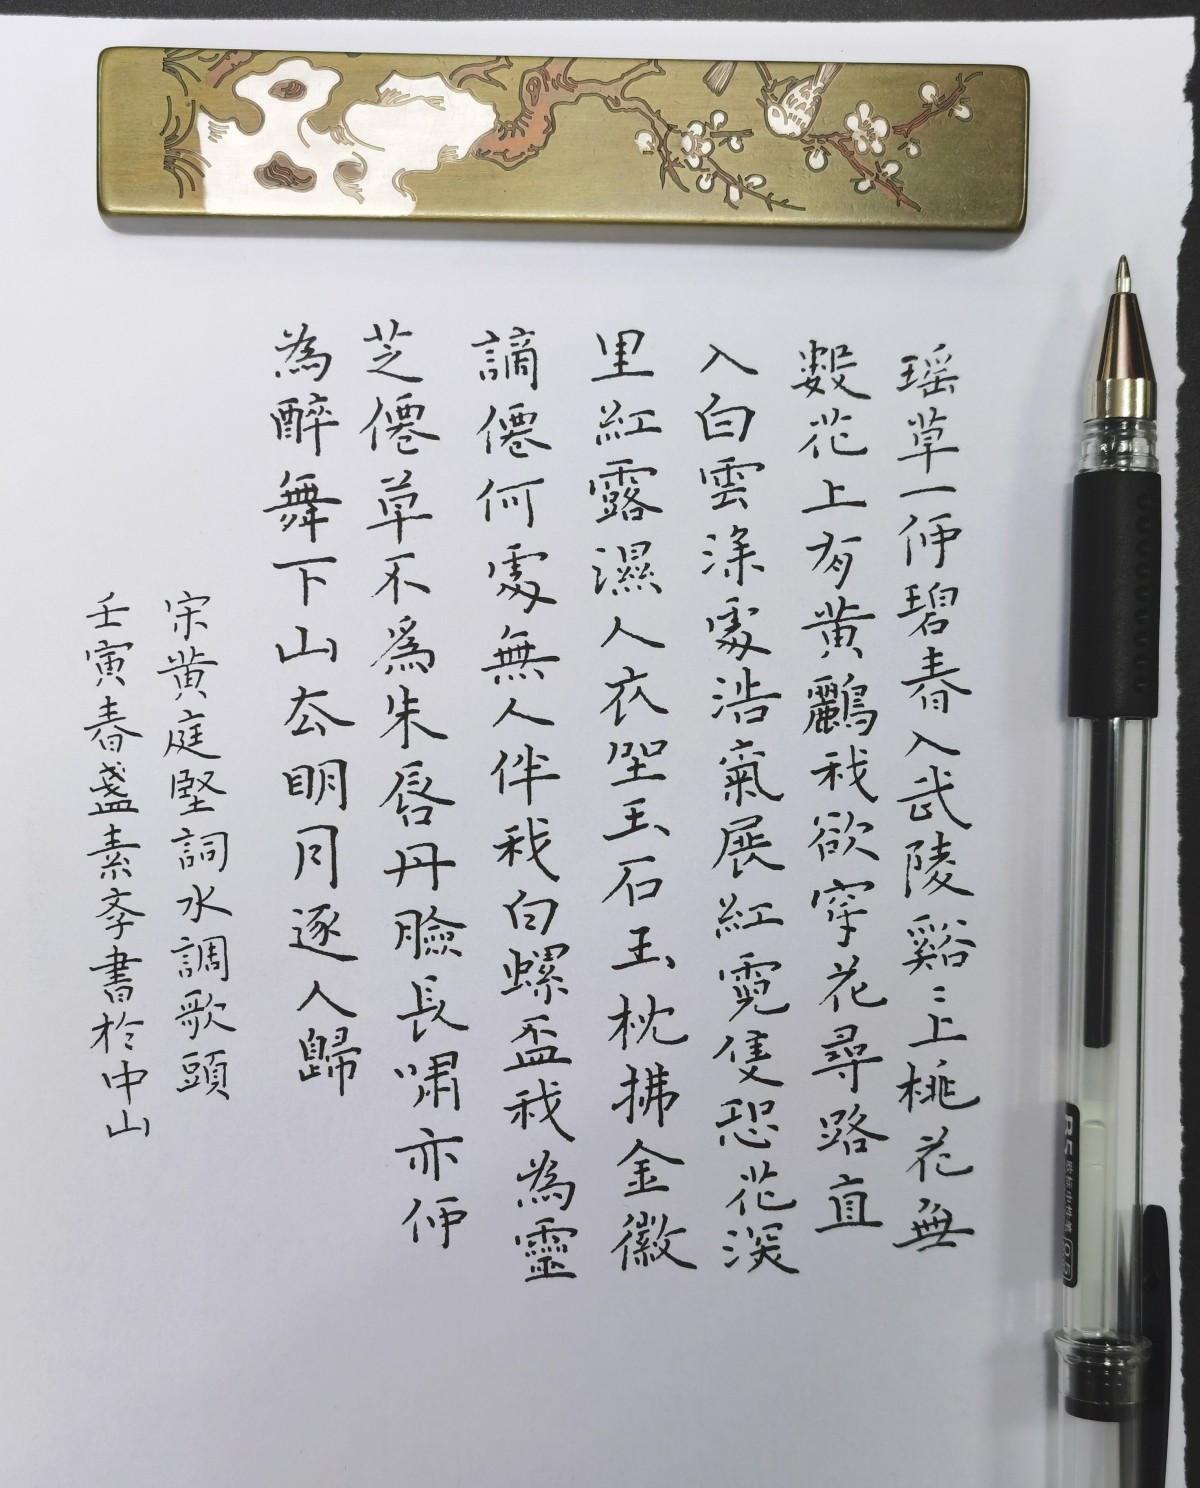 瑶草一何碧春入武陵谿〻上桃花無
數花上有黄鸝我欲穿花尋路直
入白雲深處浩氣展紅霓隻恐花深
里紅露濕人衣坐玉石玉枕拂金徽
謫僊何處無人伴我白螺盃我為靈
芝僊草不爲朱唇丹臉長嘯亦何
為醉舞下山去明月逐人歸
宋黄庭堅詞水調歌頭
壬寅春盞素齋書於中山
R5
0.5